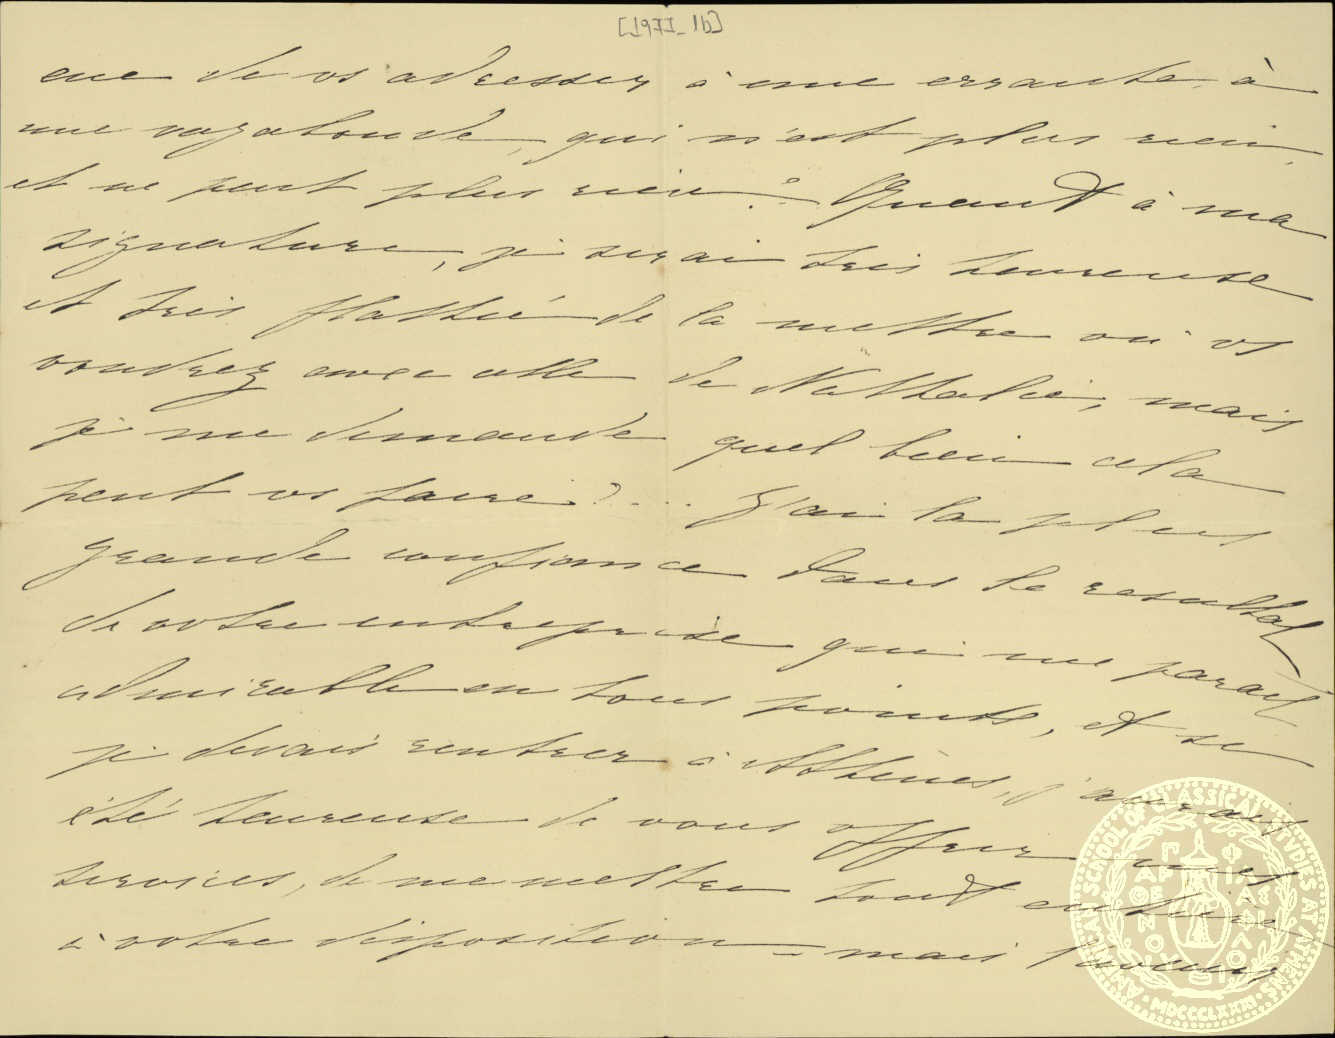 [1977_1b]
de vs adresser à une errante, à
une vagabonde, qui n'est plus rien,
et ne peut plus rien? Quant à ma
signature, je serai très heureuse
et très flattée de la mettre où vs
voudrez avec celle de Nathalie, mais
je me demande quel bien cela
peut vs faire? ... J'ai la plus
grande confiance dans le resultat
de votre entreprise qui me parait
admirable en tous points, et si
je devais rentrer à Athènes, j'aurais
été heureuse de vous offrir mes
services, de me mettre tout entière
à votre disposition - mais
AMERICAN SCHOOL OF CLASSICAL STVDIES AT ATHENS
ΠΑΡΘΕΝΟΥ ΦΙΛΑΣ ΦΙΛΟΙ
MDCCCLXXXI